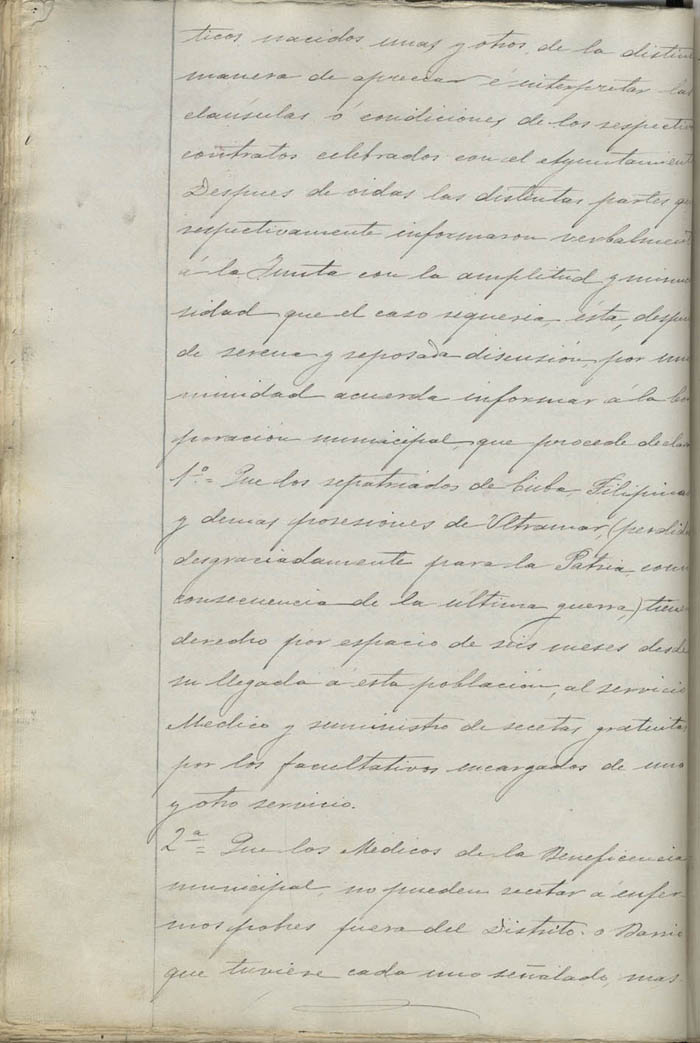 ticos, nacidos unas y otros, de la distin
manera de apreciar é interpretar las
claúsulas ó condiciones de los respectivos
contratos celebrados con el Ayuntamiento
Despues de oidas las distintas partes que
respectivamente informaron verbalment
á la Junta con la amplitud y minu
sidad que el caso requeria, ésta, despu
de serena y reposada discusión, por una
nimidad acuerda informar á la Cor
poración municipal, que procede declar
1º.= Que los repatriados de Cuba, Filipinas
y demas posesiones de Ultramar, (perdid
desgraciadamente para la Patria, como
consecuencia de la última guerra,) tien
derecho por espacio de seis meses desde
su llegada á esta población, al servicio
Medico y suministro de recetas gratuitas
por los facultativos encargados de uno
y otro servicio.
2ª= Que los Médicos de la Beneficencia
municipal, no pueden recetár á enfer-
mos pobres fuera del Distrito o Barrio
que tuviere cada uno señalado, mas